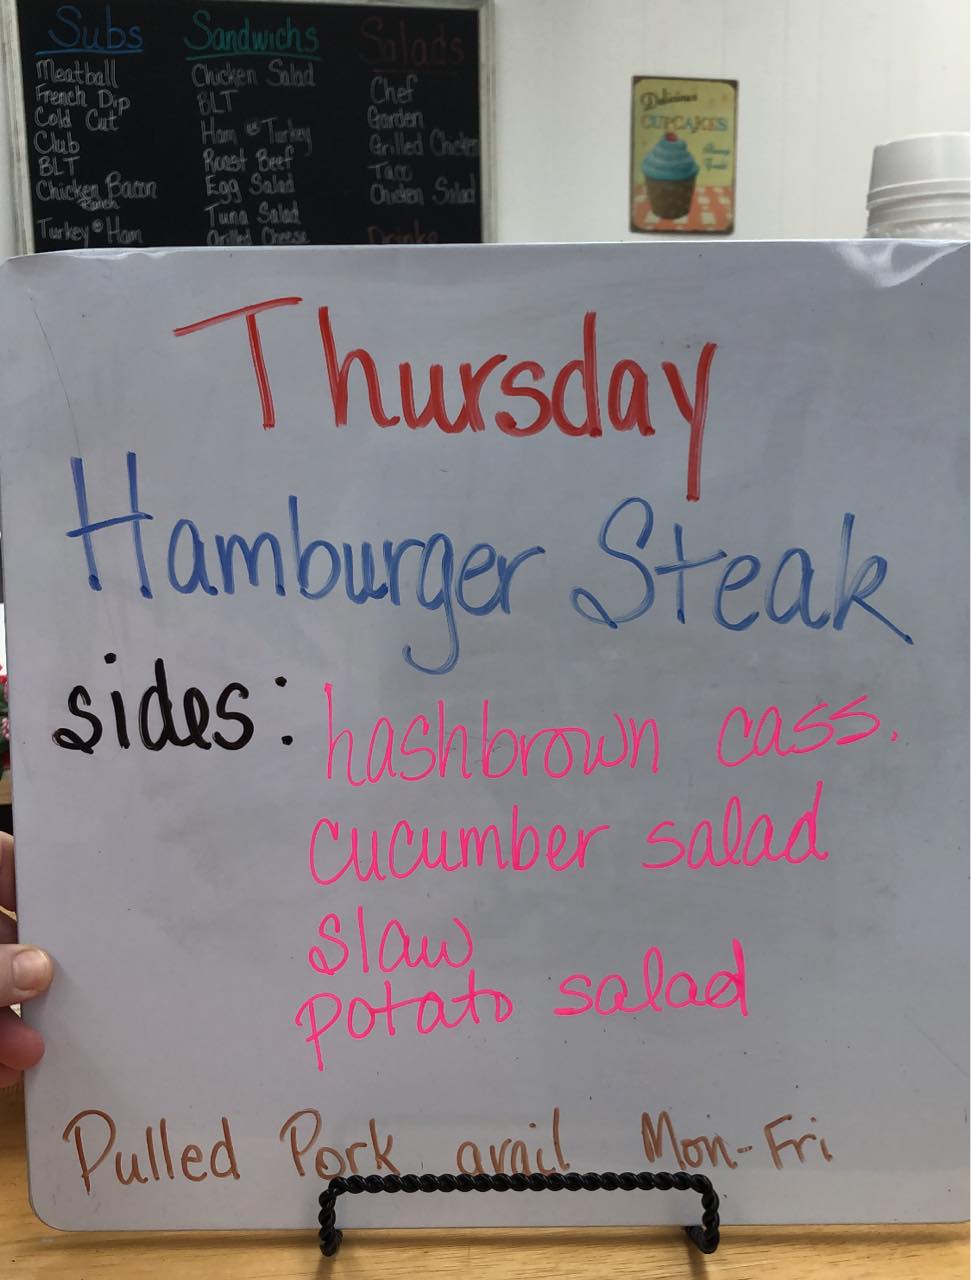 Subs
Meatball
French Dip
Cold Cut
Club
BLT
Chicken Bacon
Ranch
Turkey & Ham
Sandwichs
Chicken Salad
BLT
Ham & Turkey
Roast Beef
Egg Salad
Tuna Salad
Grilled Cheese
Salads
Chef
Garden
Grilled Chicken
Taco
Chicken Salad
Drinks
Delicious
CUPCAKES
Thursday
Hamburger Steak
sides: hashbrown cass.
cucumber salad
slaw
potato salad
Pulled Pork avail Mon-Fri